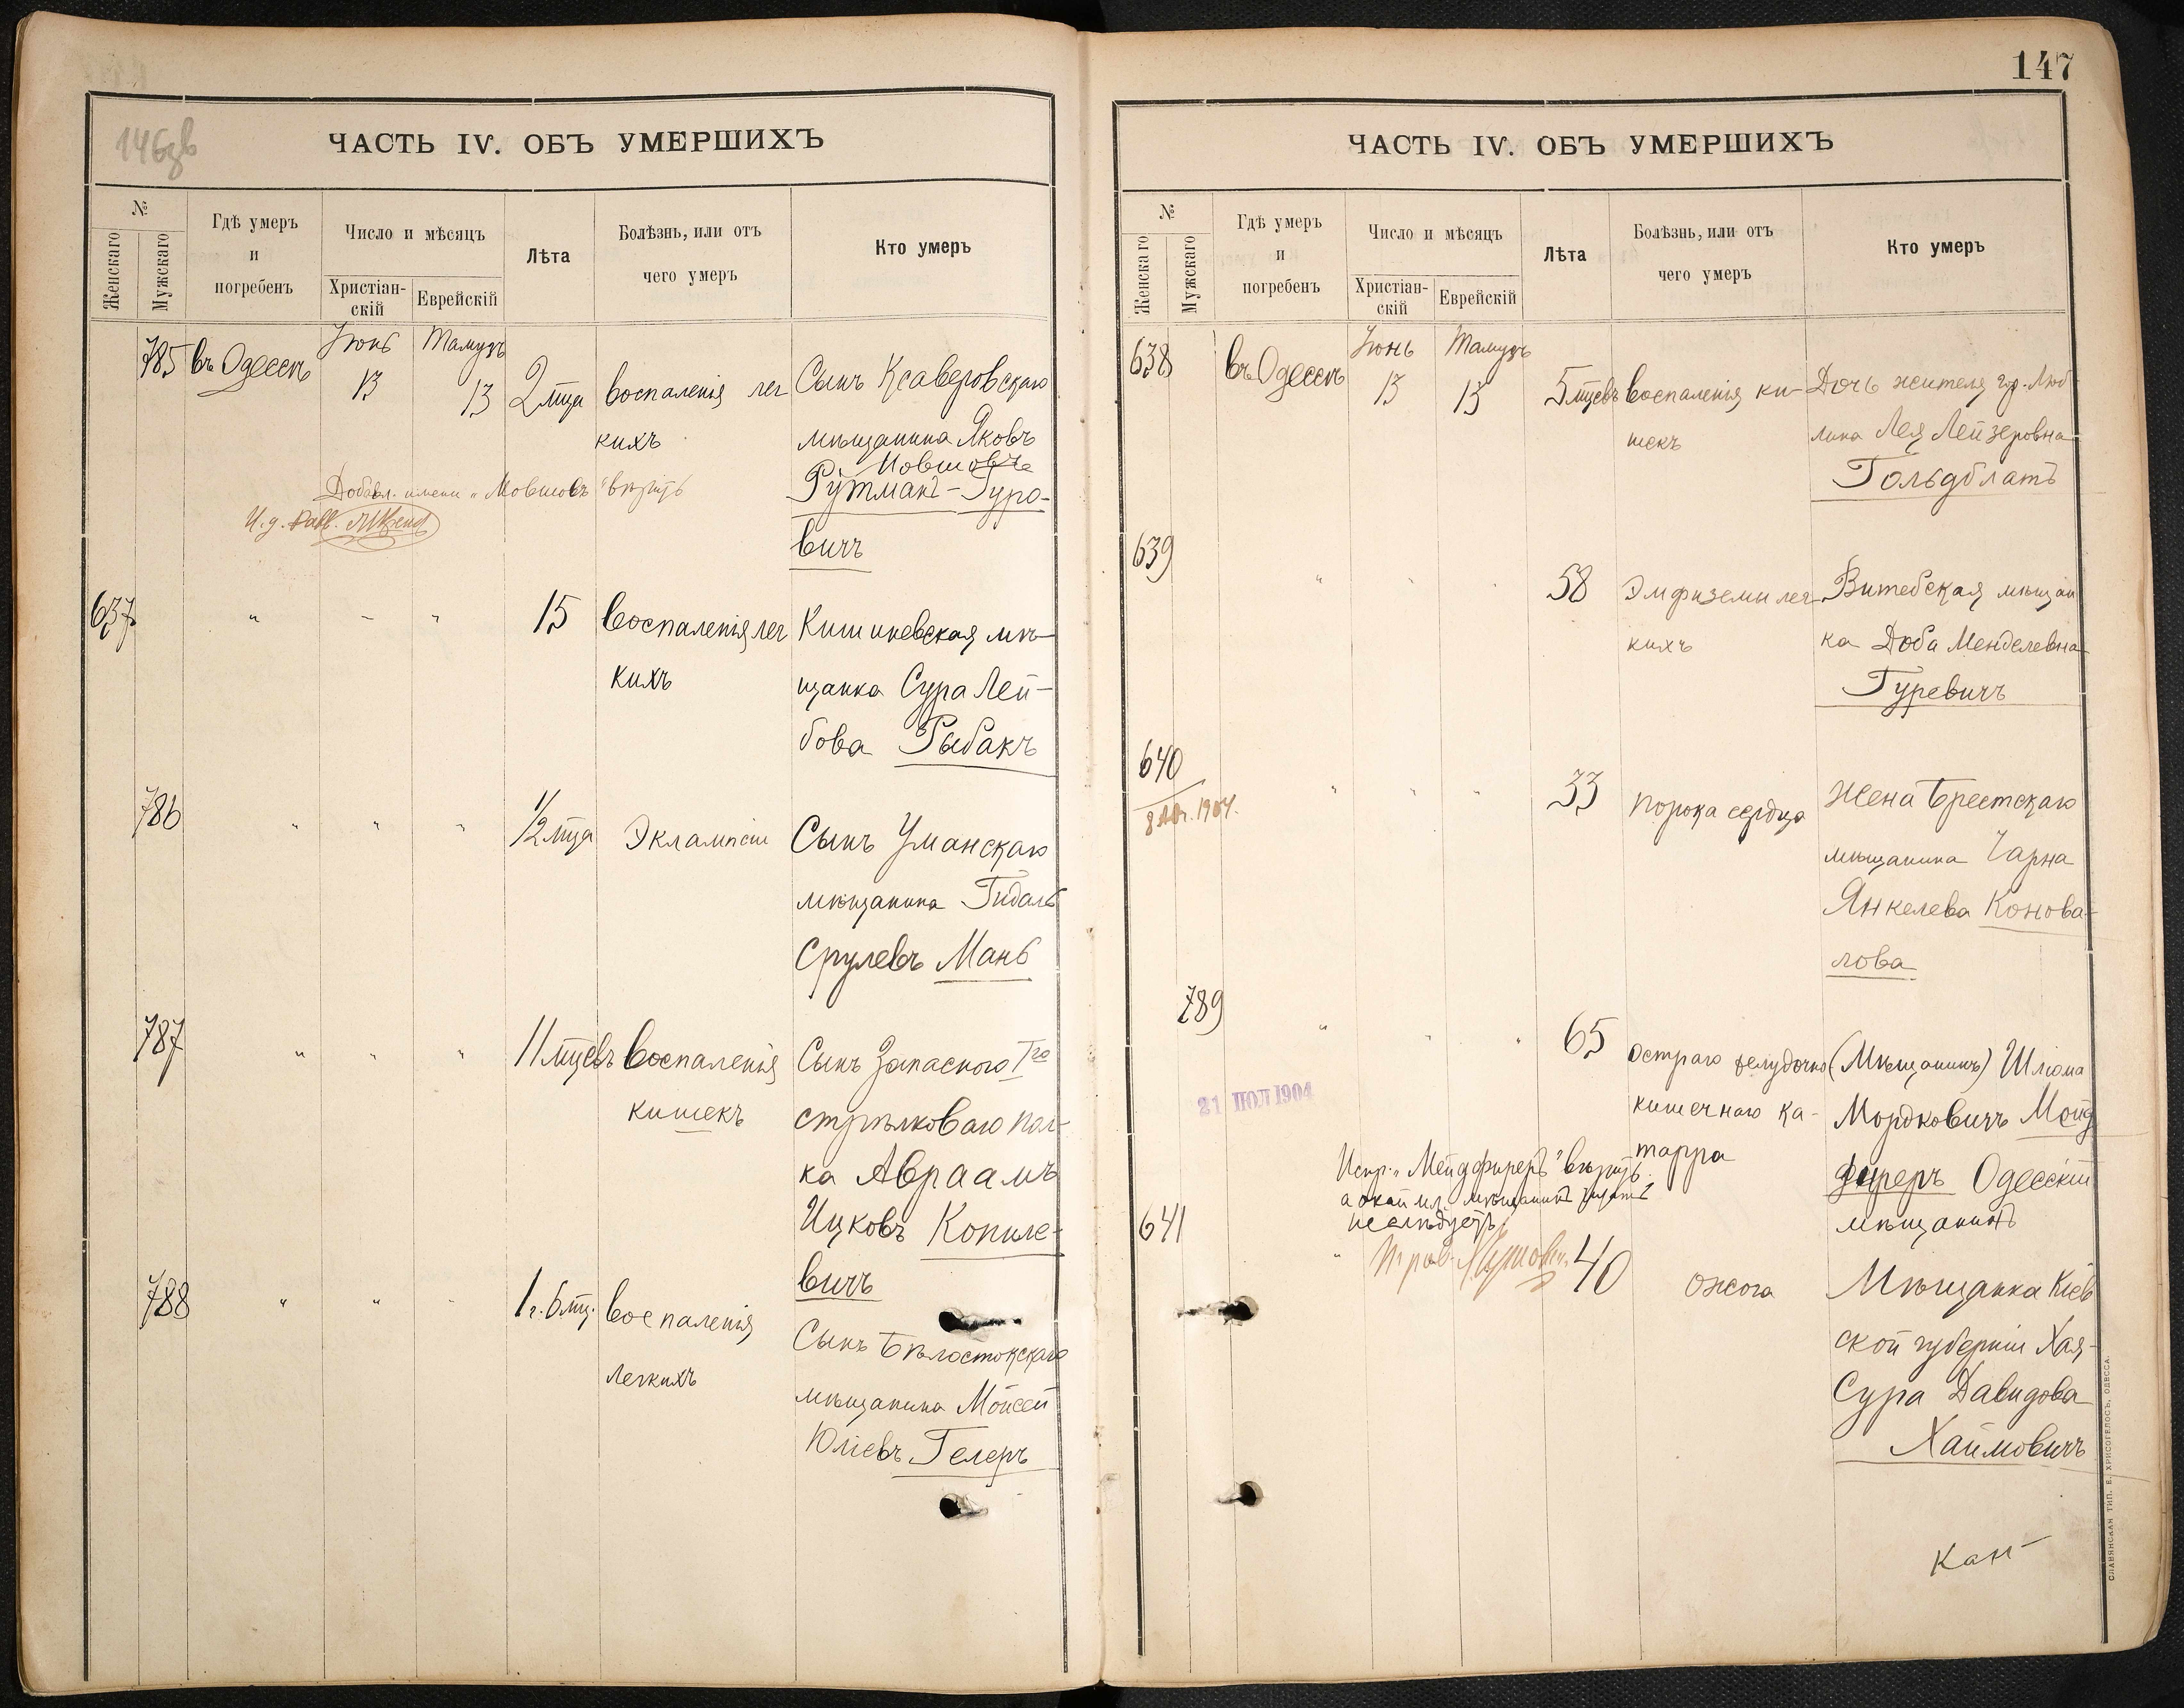 146 об
ЧАСТЬ IV. ОБЪ УМЕРШИХЪ
№
Женскаго
Мужскаго
Гдѣ умеръ
и
погребенъ
Число и мѣсяцъ
Христіан-
скій
Еврейскій
Лѣта
Болѣзнь, или отъ
чего умеръ
Кто умеръ
785 въ Одессѣ Іюнь 13 Тамузъ 13 2 мца воспаленія лег
кихъ
Сынъ Ксаверовскаго
мѣщанина Яковъ
Мовшовъ
Рутманъ-Гуро-
вичъ
Добавл. имени „Мовшовъ" вѣрить
И. д.
637 " - " 15 воспаленія лег
кихъ
Кишиневская мѣ-
щанка Сура Лей-
бова Рыбакъ
786 " " " 1/2 мца Эклампсіи
Сынъ Уманскаго
мѣщанина Гидаль
Срулевъ Мань
787 " " " 11 мцевъ воспаленія
кишекъ
Сынъ запасного
стрѣлковаго пол-
ка Авраамъ
Ицковъ Копиле-
вичъ
788 " " - 1 г. 6 мц. воспаленія
легкихъ
Сынъ Бѣлостокскаго
мѣщанина Мойсей
Юліевъ Гелеръ
147
ЧАСТЬ IV. ОБЪ УМЕРШИХЪ
№
Женскаго
Мужскаго
Гдѣ умеръ
и
погребенъ
Число и мѣсяцъ
Христіан-
скій
Еврейскій
Лѣта
Болѣзнь, или отъ
чего умеръ
Кто умеръ
638 въ Одессѣ Іюнь 13 Тамузъ 13 5 мцевъ воспаленія ки-
шекъ
Дочь жителя гор. Люб-
лина Лея Лейзеровна
Гольдблатъ
639 " " " 58 Эмфиземы лег-
кихъ
Витебская мѣщан
ка Доба Менделевна
Гуревичъ
640 " " " 33 порока сердца
8 Авг. 1904.
Жена Брестскаго
мѣщанина Чарна
Янкелева Конова-
лова
789 " " " 65 остраго желудочно
кишечнаго ка-
тарра
(Мѣщанинъ) Шлюма
Мордковичъ Мейд
фиреръ Одесскій
мѣщанинъ
21 ІЮЛ 1904
Испр. „Мейдфиреръ" вѣрить
не слѣдуетъ
641 " 40 ожога
Мѣщанка Кіев
ской губерніи Хая-
Сура Давидова
Хаймовичъ
СЛАВЯНСКАЯ ТИП. Е. ХРИСОГЕЛОСЪ, ОДЕССА.